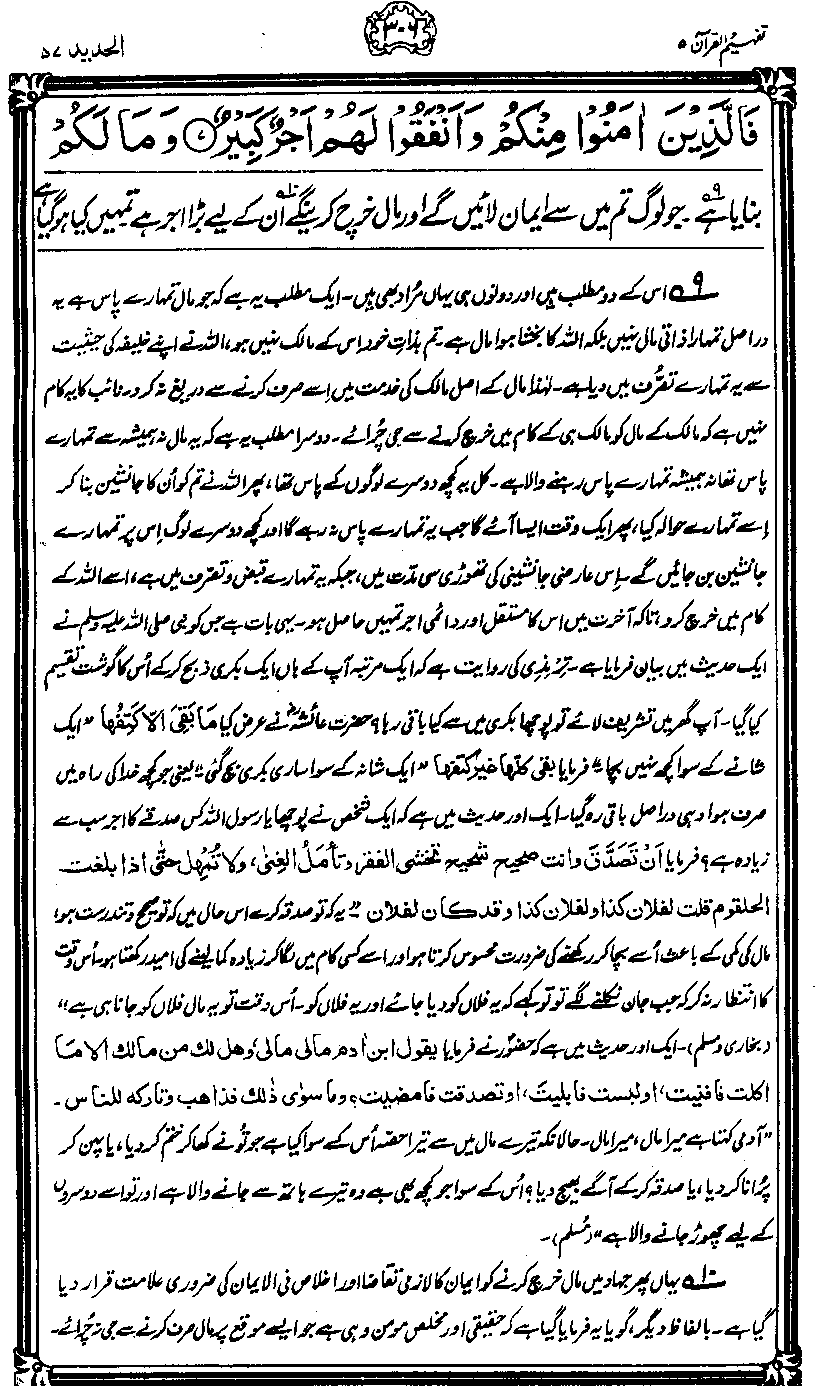 تفہیم القرآن ۵
۳۰۶
الحدید ۵۷
فَالَّذِيْنَ اٰمَنُوْا مِنْكُمْ وَاَنْفَقُوْا لَهُمْ اَجْرٌ كَبِيْرٌ ﴿۷﴾ وَمَا لَكُمْ
بنایا ہے۹۔ جو لوگ تم میں سے ایمان لائیں گے اور مال خرچ کرینگے۱۰ ان کے لیے بڑا اجر ہے۔ تمہیں کیا ہو گیا ہے
۹ اس کے دو مطلب ہیں اور دونوں ہی یہاں مراد بھی ہیں۔ ایک مطلب یہ ہے کہ جو مال تمہارے پاس ہے یہ
دراصل تمہارا ذاتی مال نہیں بلکہ اللہ کا بخشا ہوا مال ہے۔ تم بذاتِ خود اس کے مالک نہیں ہو، اللہ نے اپنے خلیفہ کی حیثیت
سے یہ تمہارے تصرُّف میں دیا ہے۔ لہٰذا مال کے اصل مالک کی خدمت میں اسے صرف کرنے سے دریغ نہ کرو۔ نائب کا یہ کام
نہیں ہے کہ مالک کے مال کو مالک ہی کے کام میں خرچ کرنے سے جی چُرائے۔ دوسرا مطلب یہ ہے کہ یہ مال نہ ہمیشہ سے تمہارے
پاس تھا نہ ہمیشہ تمہارے پاس رہنے والا ہے۔ کل یہ کچھ دوسرے لوگوں کے پاس تھا، پھر اللہ نے تم کو اُن کا جانشین بنا کر
اِسے تمہارے حوالہ کیا، پھر ایک وقت ایسا آئے گا جب یہ تمہارے پاس نہ رہے گا اور کچھ دوسرے لوگ اِس پر تمہارے
جانشین بن جائیں گے۔ اِس عارضی جانشینی کی تھوڑی سی مدّت میں، جبکہ یہ تمہارے قبض و تصرف میں ہے، اسے اللہ کے
کام میں خرچ کرو، تاکہ آخرت میں اس کا مستقل اور دائمی اجر تمہیں حاصل ہو۔ یہی بات ہے جس کو نبی صلی اللہ علیہ وسلم نے
ایک حدیث میں بیان فرمایا ہے۔ تِرمِذی کی روایت ہے کہ ایک مرتبہ آپ کے ہاں ایک بکری ذبح کرکے اُس کا گوشت تقسیم
کیا گیا۔ آپ گھر میں تشریف لائے تو پوچھا بکری میں سے کیا باقی رہا؟ حضرت عائشہؓ نے عرض کیا مَا بَقِیَ اِلَّا کَتِفُھَا "ایک
شانے کے سوا کچھ نہیں بچا"۔ فرمایا بقی کلھا غیر کتفھا "ایک شانہ کے سوا ساری بکری بچ گئی"۔ یعنی جو کچھ خدا کی راہ میں
صرف ہوا وہی دراصل باقی رہ گیا۔ ایک اور حدیث میں ہے کہ ایک شخص نے پوچھا یا رسول اللہ کس صدقے کا اجر سب سے
زیادہ ہے؟ فرمایا اَنْ تَصَدَّقَ وانت صحیح شحیح تخشی الفقر وتأمل الغِنیٰ، ولا تُمْھل حتّٰی اذا بلغت
الحلقوم قلت لفلان کذا ولفلان کذا وقد کان لفلان "یہ کہ تو صدقہ کرے اس حال میں کہ تو صحیح و تندرست ہو،
مال کی کمی کے باعث اُسے بچا کر رکھنے کی ضرورت محسوس کرتا ہو اور اسے کسی کام میں لگا کر زیادہ کما لینے کی امید رکھتا ہو۔ اُس وقت
کا انتظار نہ کر کہ جب جان نکلنے لگے تو تو کہے کہ یہ فلاں کو دیا جائے اور یہ فلاں کو۔ اُس وقت تو یہ مال فلاں کو جانا ہی ہے"
(بخاری و مسلم)۔ ایک اور حدیث میں ہے کہ حضورؐ نے فرمایا یقول ابن اٰدم مالی مالی، وھل لك من مالك الا ما
اکلت فافنیت، او لبست فابلیت، او تصدقت فامضیت؟ وما سوٰی ذٰلك فذاھب وتارکہ للناس۔
"آدمی کہتا ہے میرا مال، میرا مال۔ حالانکہ تیرے مال میں سے تیرا حصّہ اُس کے سوا کیا ہے جو تُو نے کھا کر ختم کر دیا، یا پہن کر
پُرانا کر دیا، یا صدقہ کرکے آگے بھیج دیا؟ اُس کے سوا جو کچھ بھی ہے وہ تیرے ہاتھ سے جانے والا ہے اور تو اسے دوسروں
کے لیے چھوڑ جانے والا ہے" (مُسلم)۔
۱۰ یہاں پھر جہاد میں مال خرچ کرنے کو ایمان کا لازمی تقاضا اور اخلاص فی الایمان کی ضروری علامت قرار دیا
گیا ہے۔ بالفاظ دیگر، گویا یہ فرمایا گیا ہے کہ حقیقی اور مخلص مومن وہی ہے جو ایسے موقع پر مال صرف کرنے سے جی نہ چُرائے۔